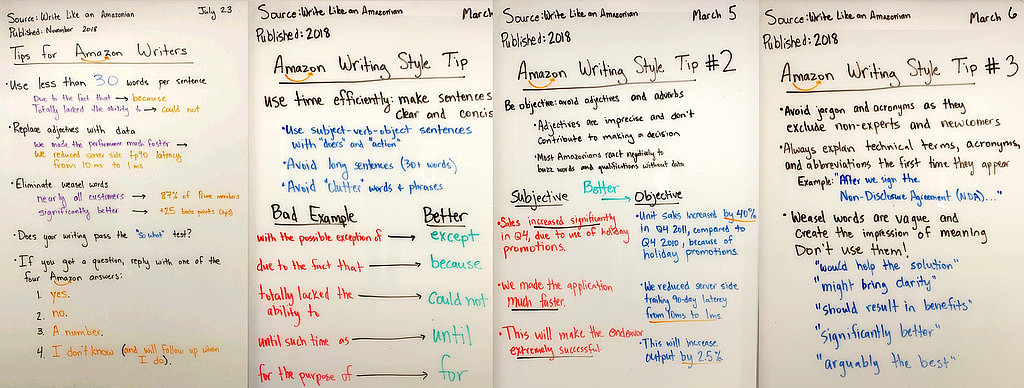 Source: Write Like an Amazonian
July 23
Published: November 2018
Tips for Amazon Writers
• Use less than 30 words per sentence
Due to the fact that → because
Totally lacked the ability to → could not
• Replace adjectives with data
We made the performance much faster →
We reduced server side tp90 latency
from 10 ms to 1 ms
• Eliminate weasel words
nearly all customers → 87% of Prime members
significantly better → +25 basis points (bps)
• Does your writing pass the "So what" test?
• If you get a question, reply with one of the
four Amazon answers:
1. yes.
2. no.
3. A number.
4. I don't know (and will follow up when
I do).
Source: Write Like an Amazonian
March
Published: 2018
Amazon Writing Style Tip
use time efficiently: make sentences
clear and concis
• Use subject-verb-object sentences
with "doers" and "action"
• Avoid long sentences (30+ words)
• Avoid "clutter" words & phrases
Bad Example
Better
with the possible exception of → except
due to the fact that → because
totally lacked the → could not
ability to
until such time as → until
for the purpose of → for
Source: Write Like an Amazonian
March 5
Published: 2018
Amazon Writing Style Tip #2
Be objective: avoid adjectives and adverbs
• Adjectives are imprecise and don't
contribute to making a decision
• Most Amazonians react negatively to
buzz words and qualifications without data
Subjective Better → Objective
• Sales increased significantly
in Q4, due to use of holiday
promotions.
• Unit sales increased by 40%
in Q4 2011, compared to
Q4 2010, because of
holiday promotions.
• We made the application
much faster.
• We reduced server side
trailing 90-day latency
from 10ms to 1ms.
• This will make the endeavor
extremely successful.
• This will increase
output by 2.5%.
Source: Write Like an Amazonian
March 6
Published: 2018
Amazon Writing Style Tip #3
• Avoid jargon and acronyms as they
exclude non-experts and newcomers
• Always explain technical terms, acronyms,
and abbreviations the first time they appear
Example: "After we sign the
Non-Disclosure Agreement (NDA)..."
• Weasel words are vague and
create the impression of meaning
Don't use them!
"would help the solution"
"might bring clarity"
"should result in benefits"
"significantly better"
"arguably the best"